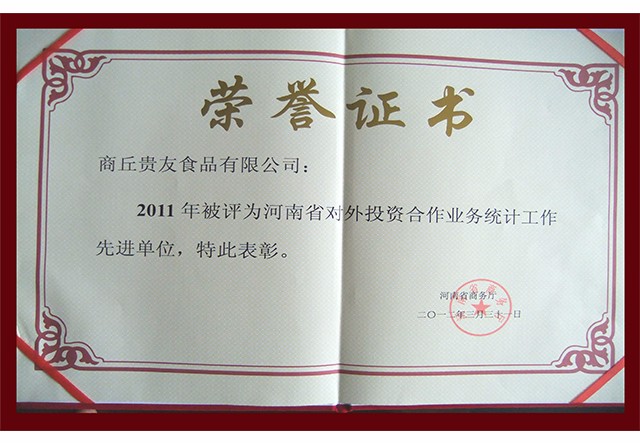 荣誉证书
商丘贵友食品有限公司：
2011年被评为河南省对外投资合作业务统计工作
先进单位，特此表彰。
河南省商务厅
二〇一二年三月三十一日